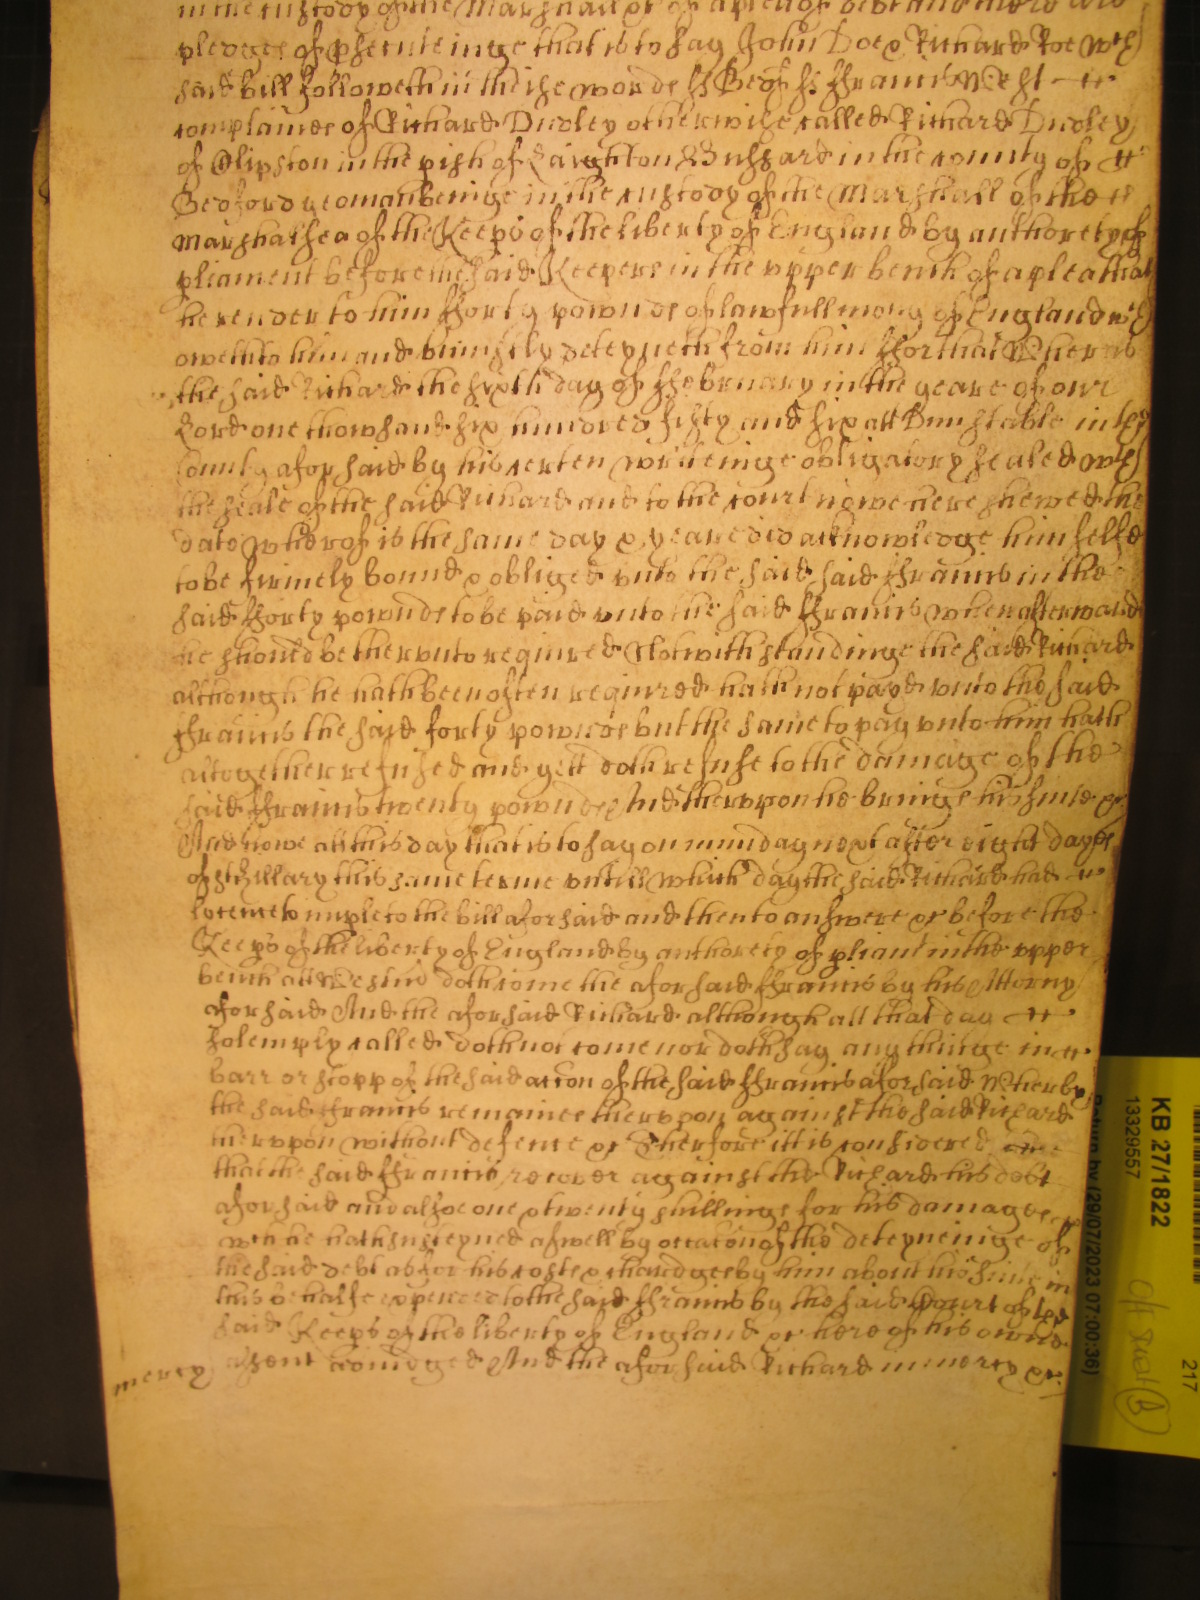 in the custody of the Marshall &c of a plea of debt and there are
pledges of p'secuteinge that is to say John Doe & Richard Roe wch
said bill followeth in these words ss Bedf ss Ffrancis West
complaines of Richard Dudley otherwise called Richard Dudley
of Clipston in the pish of Laighton Bussard in the county of
Bedford yeoman beinge in the custody of the Marshall of the
Marshalsea of the Keeps of the liberty of England by authorety of
pliament before the said Keepers in the upper bench of a plea that
he render to him fforty pownds of lawfull mony of England wch
oweth to him and uniustly deteyneth from him ffor that Wheras
the said Richard the sixth day of ffebruary in the yeare of our
Lord one thowsand six hundred fifty and six att Dunstable in the
County aforsaid by his certen writeinge obligatory sealed wth
the seale of the said Richard and to the court nowe here shewed the
date wherof is the same day & yeare did acknowledge himselfe
to be firmely bound & obliged unto the said said ffrancis in the
said fforty pownds to be paid unto the said ffrancis when afterward
he should be therunto required Notwithstandinge the said Richard
although he hath been often required hath not payd unto the said
ffrancis the said forty pownds but the same to pay unto him hath
altogether refused and yett doth refuse to the damage of the
said ffrancis twenty pownds And therupon he bringe his suite &c
And nowe att this day that is to say on munday next after eight dayes
of st Hillary this same terme untill which day the said Richard had
lycence to imple to the bill aforsaid and then to answere &c before the
Keeps of the liberty of England by authorety of pliant in the upper
bench att Westmr doth come the aforsaid ffrancis by his Attorny
aforsaid And the aforsaid Richard although all that day
solemply called doth not come nor doth say any thinge in
barr or stopp of the said accon of the said ffrancis aforsaid Wherby
the said ffrancis remaines therupon against the said Richard
therupon without defence &c Therfore itt is considered
that the said ffrancis recover against the Richard his debt
aforsaid and alsoe one & twenty shillings for his damages
wch he hath susteyned aswell by occacon of the deteyneinge of
the said debt as for his costs & chardges by him about his suite in
this behalfe expended to the said ffrancis by the said Court of the
said Keeps of the liberty of England &c here of his owne
mercy assent adiudged And the aforsaid Richard in mercy &c
KB 27/1822
13329557
Return by (29/07/2023 07:00:36)
217